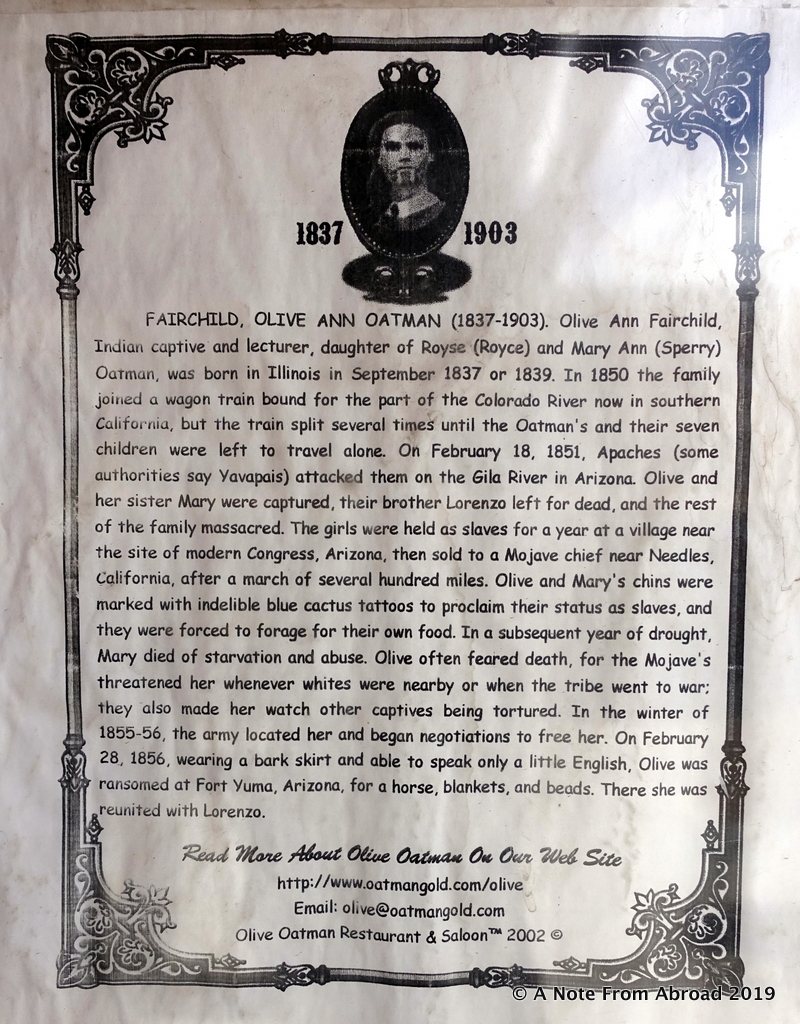 1837 1903
FAIRCHILD, OLIVE ANN OATMAN (1837-1903). Olive Ann Fairchild,
Indian captive and lecturer, daughter of Royse (Royce) and Mary Ann (Sperry)
Oatman, was born in Illinois in September 1837 or 1839. In 1850 the family
joined a wagon train bound for the part of the Colorado River now in southern
California, but the train split several times until the Oatman's and their seven
children were left to travel alone. On February 18, 1851, Apaches (some
authorities say Yavapais) attacked them on the Gila River in Arizona. Olive and
her sister Mary were captured, their brother Lorenzo left for dead, and the rest
of the family massacred. The girls were held as slaves for a year at a village near
the site of modern Congress, Arizona, then sold to a Mojave chief near Needles,
California, after a march of several hundred miles. Olive and Mary's chins were
marked with indelible blue cactus tattoos to proclaim their status as slaves, and
they were forced to forage for their own food. In a subsequent year of drought,
Mary died of starvation and abuse. Olive often feared death, for the Mojave's
threatened her whenever whites were nearby or when the tribe went to war;
they also made her watch other captives being tortured. In the winter of
1855-56, the army located her and began negotiations to free her. On February
28, 1856, wearing a bark skirt and able to speak only a little English, Olive was
ransomed at Fort Yuma, Arizona, for a horse, blankets, and beads. There she was
reunited with Lorenzo.
Read More About Olive Oatman On Our Web Site
http://www.oatmangold.com/olive
Email: olive@oatmangold.com
Olive Oatman Restaurant & Saloon™ 2002 ©
© A Note From Abroad 2019